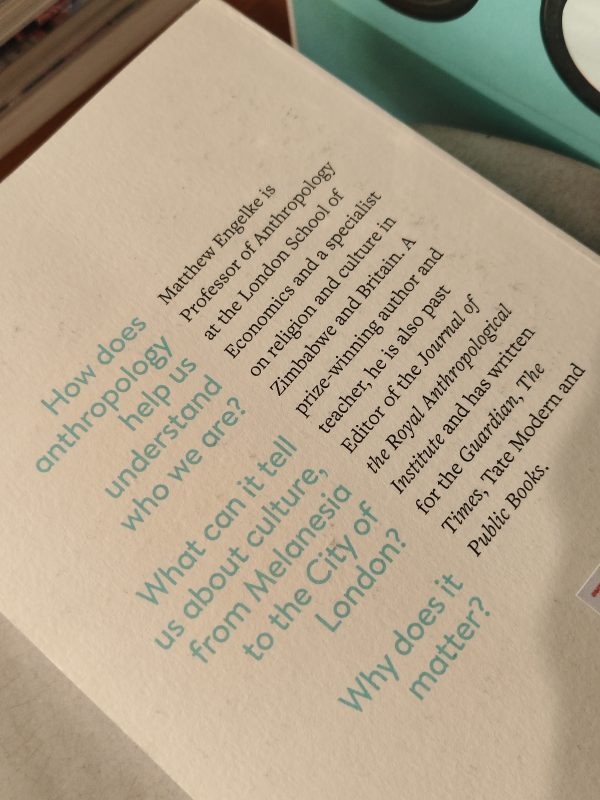 Matthew Engelke is
Professor of Anthropology
at the London School of
Economics and a specialist
on religion and culture in
Zimbabwe and Britain. A
prize-winning author and
teacher, he is also past
Editor of the Journal of
the Royal Anthropological
Institute and has written
for the Guardian, The
Times, Tate Modern and
Public Books.
How does
anthropology
help us
understand
who we are?
What can it tell
us about culture,
from Melanesia
to the City of
London?
Why does it
matter?